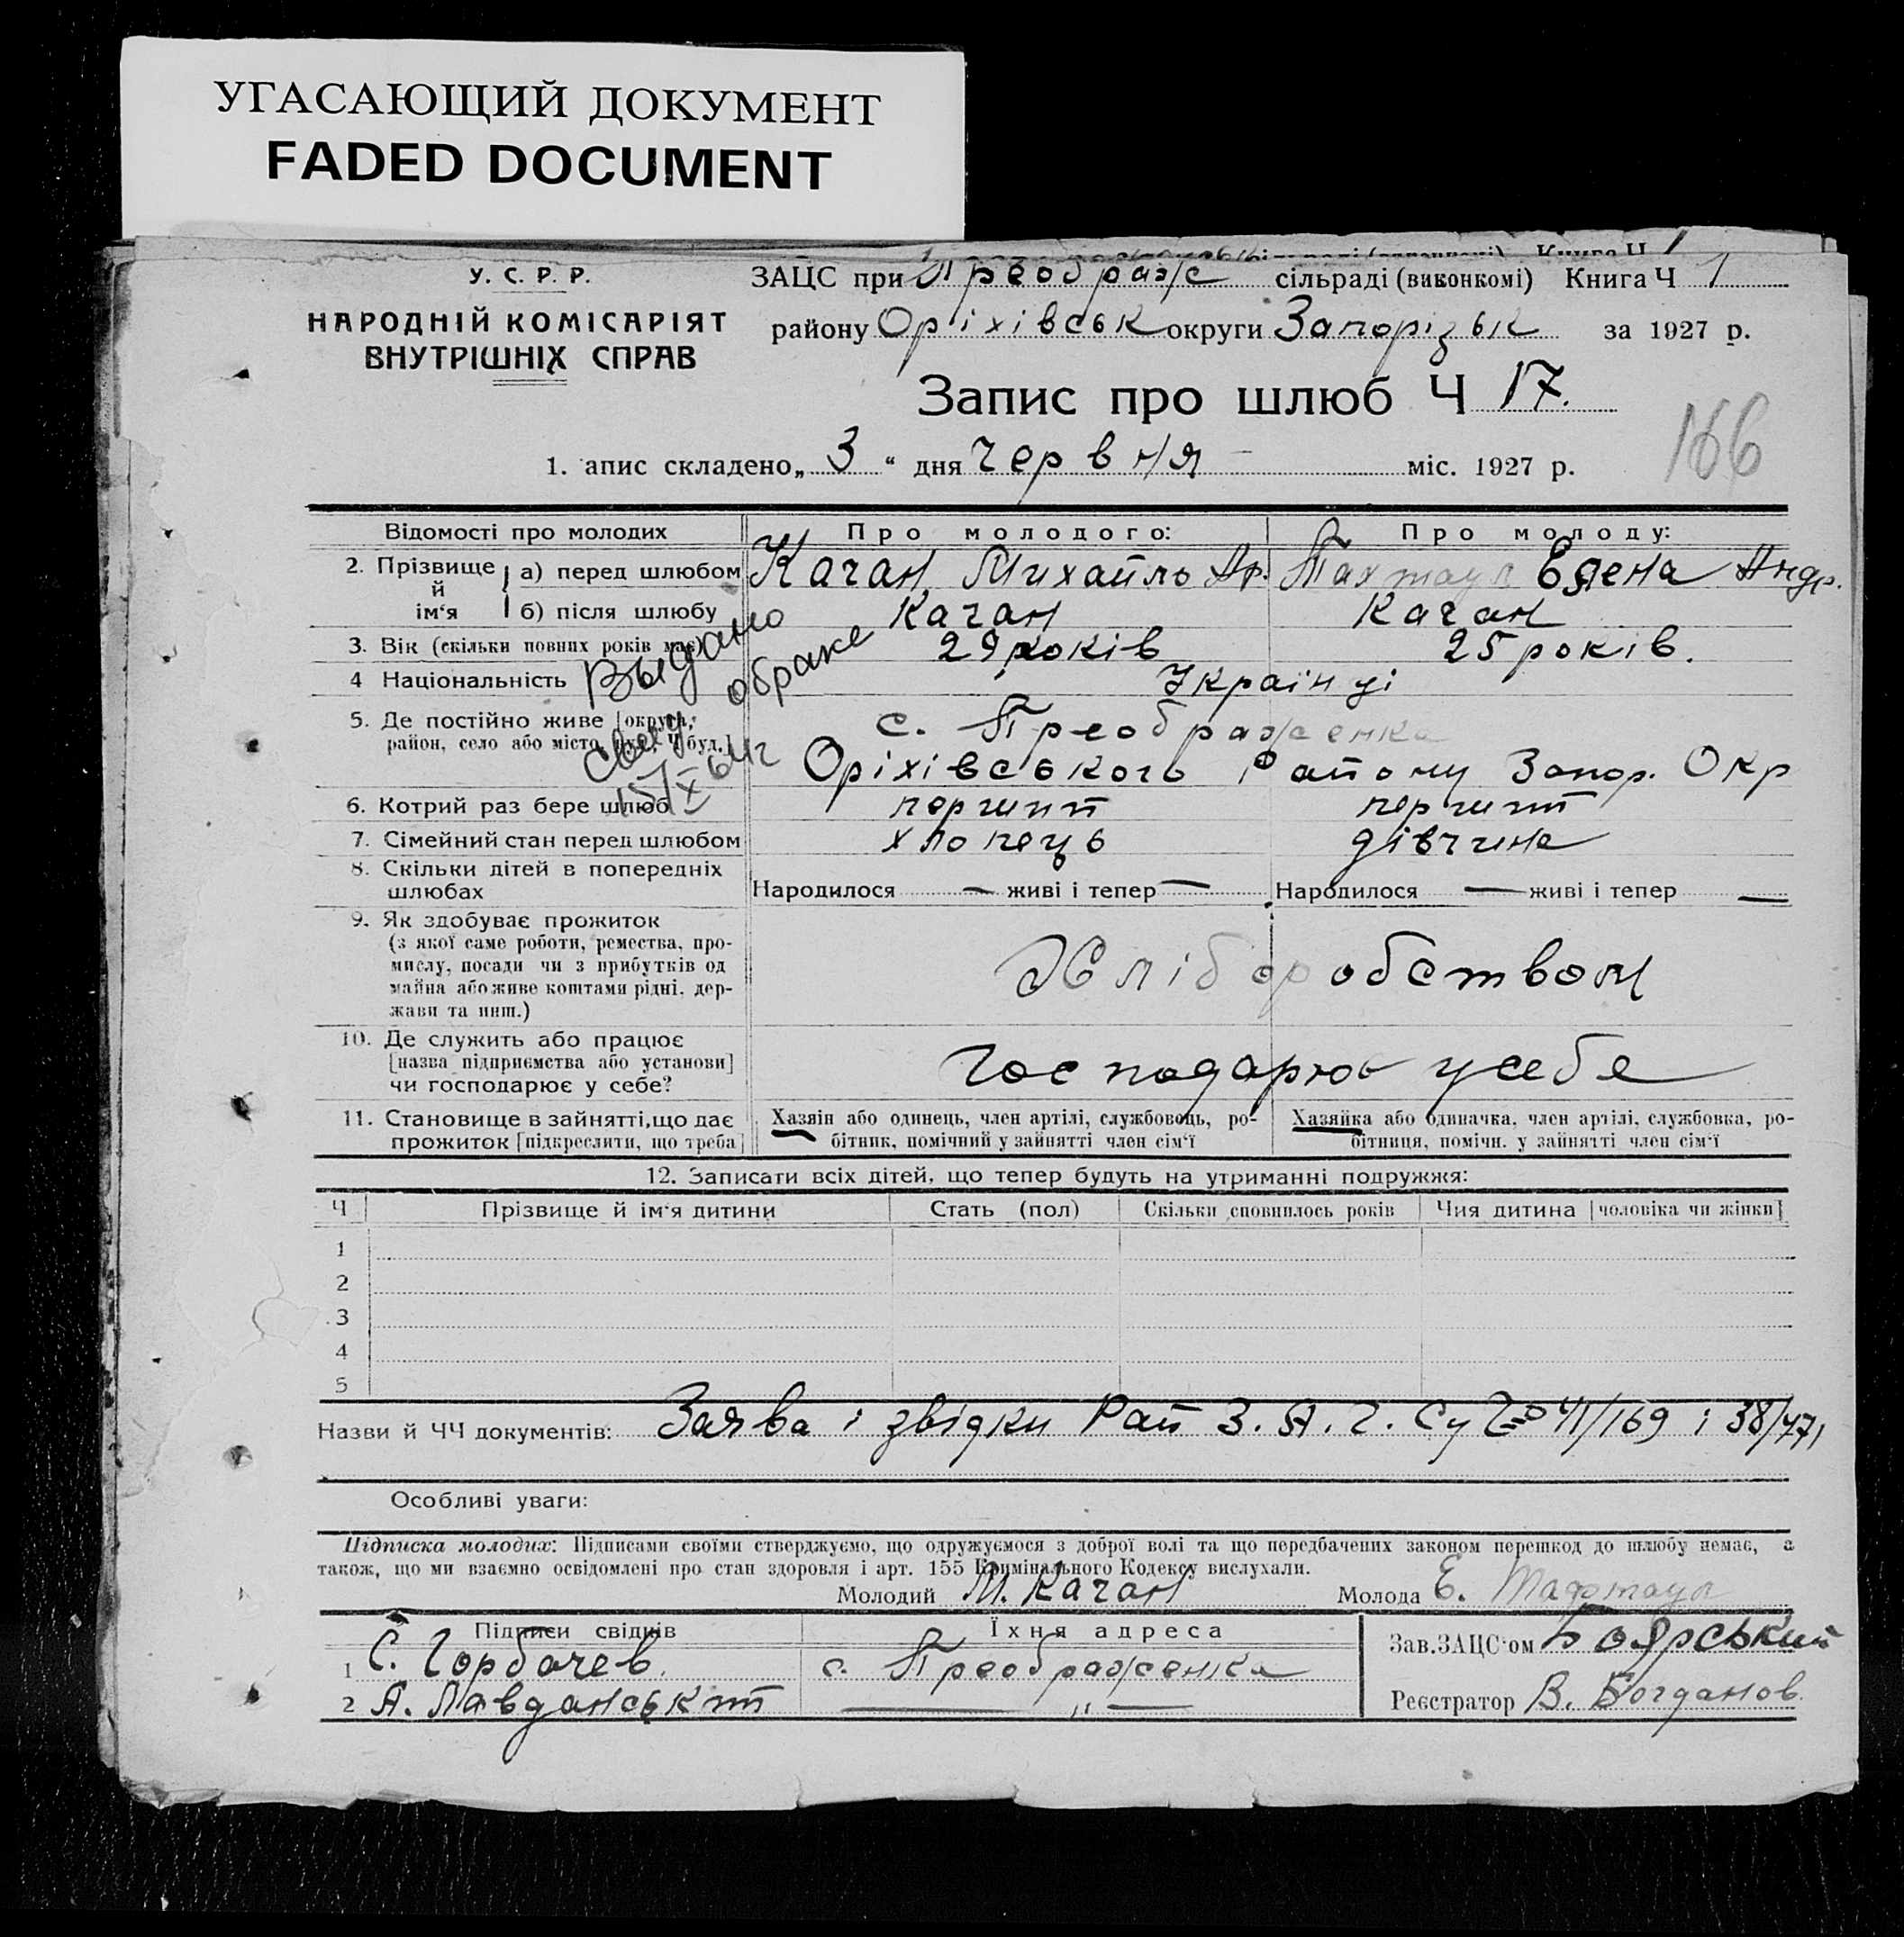 УГАСАЮЩИЙ ДОКУМЕНТ
FADED DOCUMENT
У. С. Р. Р.
НАРОДНІЙ КОМІСАРІЯТ
ВНУТРІШНІХ СПРАВ
ЗАЦС при Преображ сільраді (виконкомі) Книга Ч 1
району Оріхівськ округи Запорізьк за 1927 р.
Запис про шлюб Ч 17.
166
1. апис складено „3“ дня червня міс. 1927 р.
Відомості про молодих Про молодого: Про молоду:
2. Прізвище й ім‘я а) перед шлюбом Качан Михайло Ар. Елена Андр.
б) після шлюбу Качан Качан
3. Вік (скільки повних років має) 29 років 25 років.
4 Національність Українці
Выдано
свед обраке
15/X 64 г
5. Де постійно живе [округа, с. Преображенка
район, село або місто, вул., Ч буд.] Оріхівського Району Запор. Окр
6. Котрий раз бере шлюб перший перший
7. Сімейний стан перед шлюбом хлопець дівчина
8. Скільки дітей в попередніх
шлюбах Народилося — живі і тепер — Народилося — живі і тепер —
9. Як здобуває прожиток
(з якої саме роботи, ремества, про-
мислу, посади чи з прибутків од
майна або живе коштами рідні, дер-
жави та инш.)
Хліборобством
10. Де служить або працює
[назва підприємства або установи]
чи господарює у себе?
Господарює у себе
11. Становище в зайнятті, що дає Хазяін або одинець, член артілі, службовець, ро- Хазяйка або одиначка, член артілі, службовка, ро-
прожиток [підкреслити, що треба] бітник, помічний у зайнятті член сім‘ї бітниця, помічн. у зайнятті член сім‘ї
12. Записати всіх дітей, що тепер будуть на утриманні подружжя:
Ч Прізвище й ім‘я дитини Стать (пол) Скільки сповнилось років Чия дитина [чоловіка чи жінки]
1
2
3
4
5
Назви й ЧЧ документів: Заява і звідки Рай З. А. Г. Су 41/169 і 38/471
Особливі уваги:
Підписка молодих: Підписами своїми стверджуємо, що одружуємося з доброї волі та що передбачених законом перешкод до шлюбу немає, а
також, що ми взаємно освідомлені про стан здоровля і арт. 155 Кримінального Кодексу вислухали.
Молодий М. Качан Молода Е.
Підписи свідків Їхня адреса Зав.ЗАЦС‘ом Боярський
1 С. Горбачев. с. Преображенка
2 А. Лавданський — „ — Реєстратор В. Богданов.